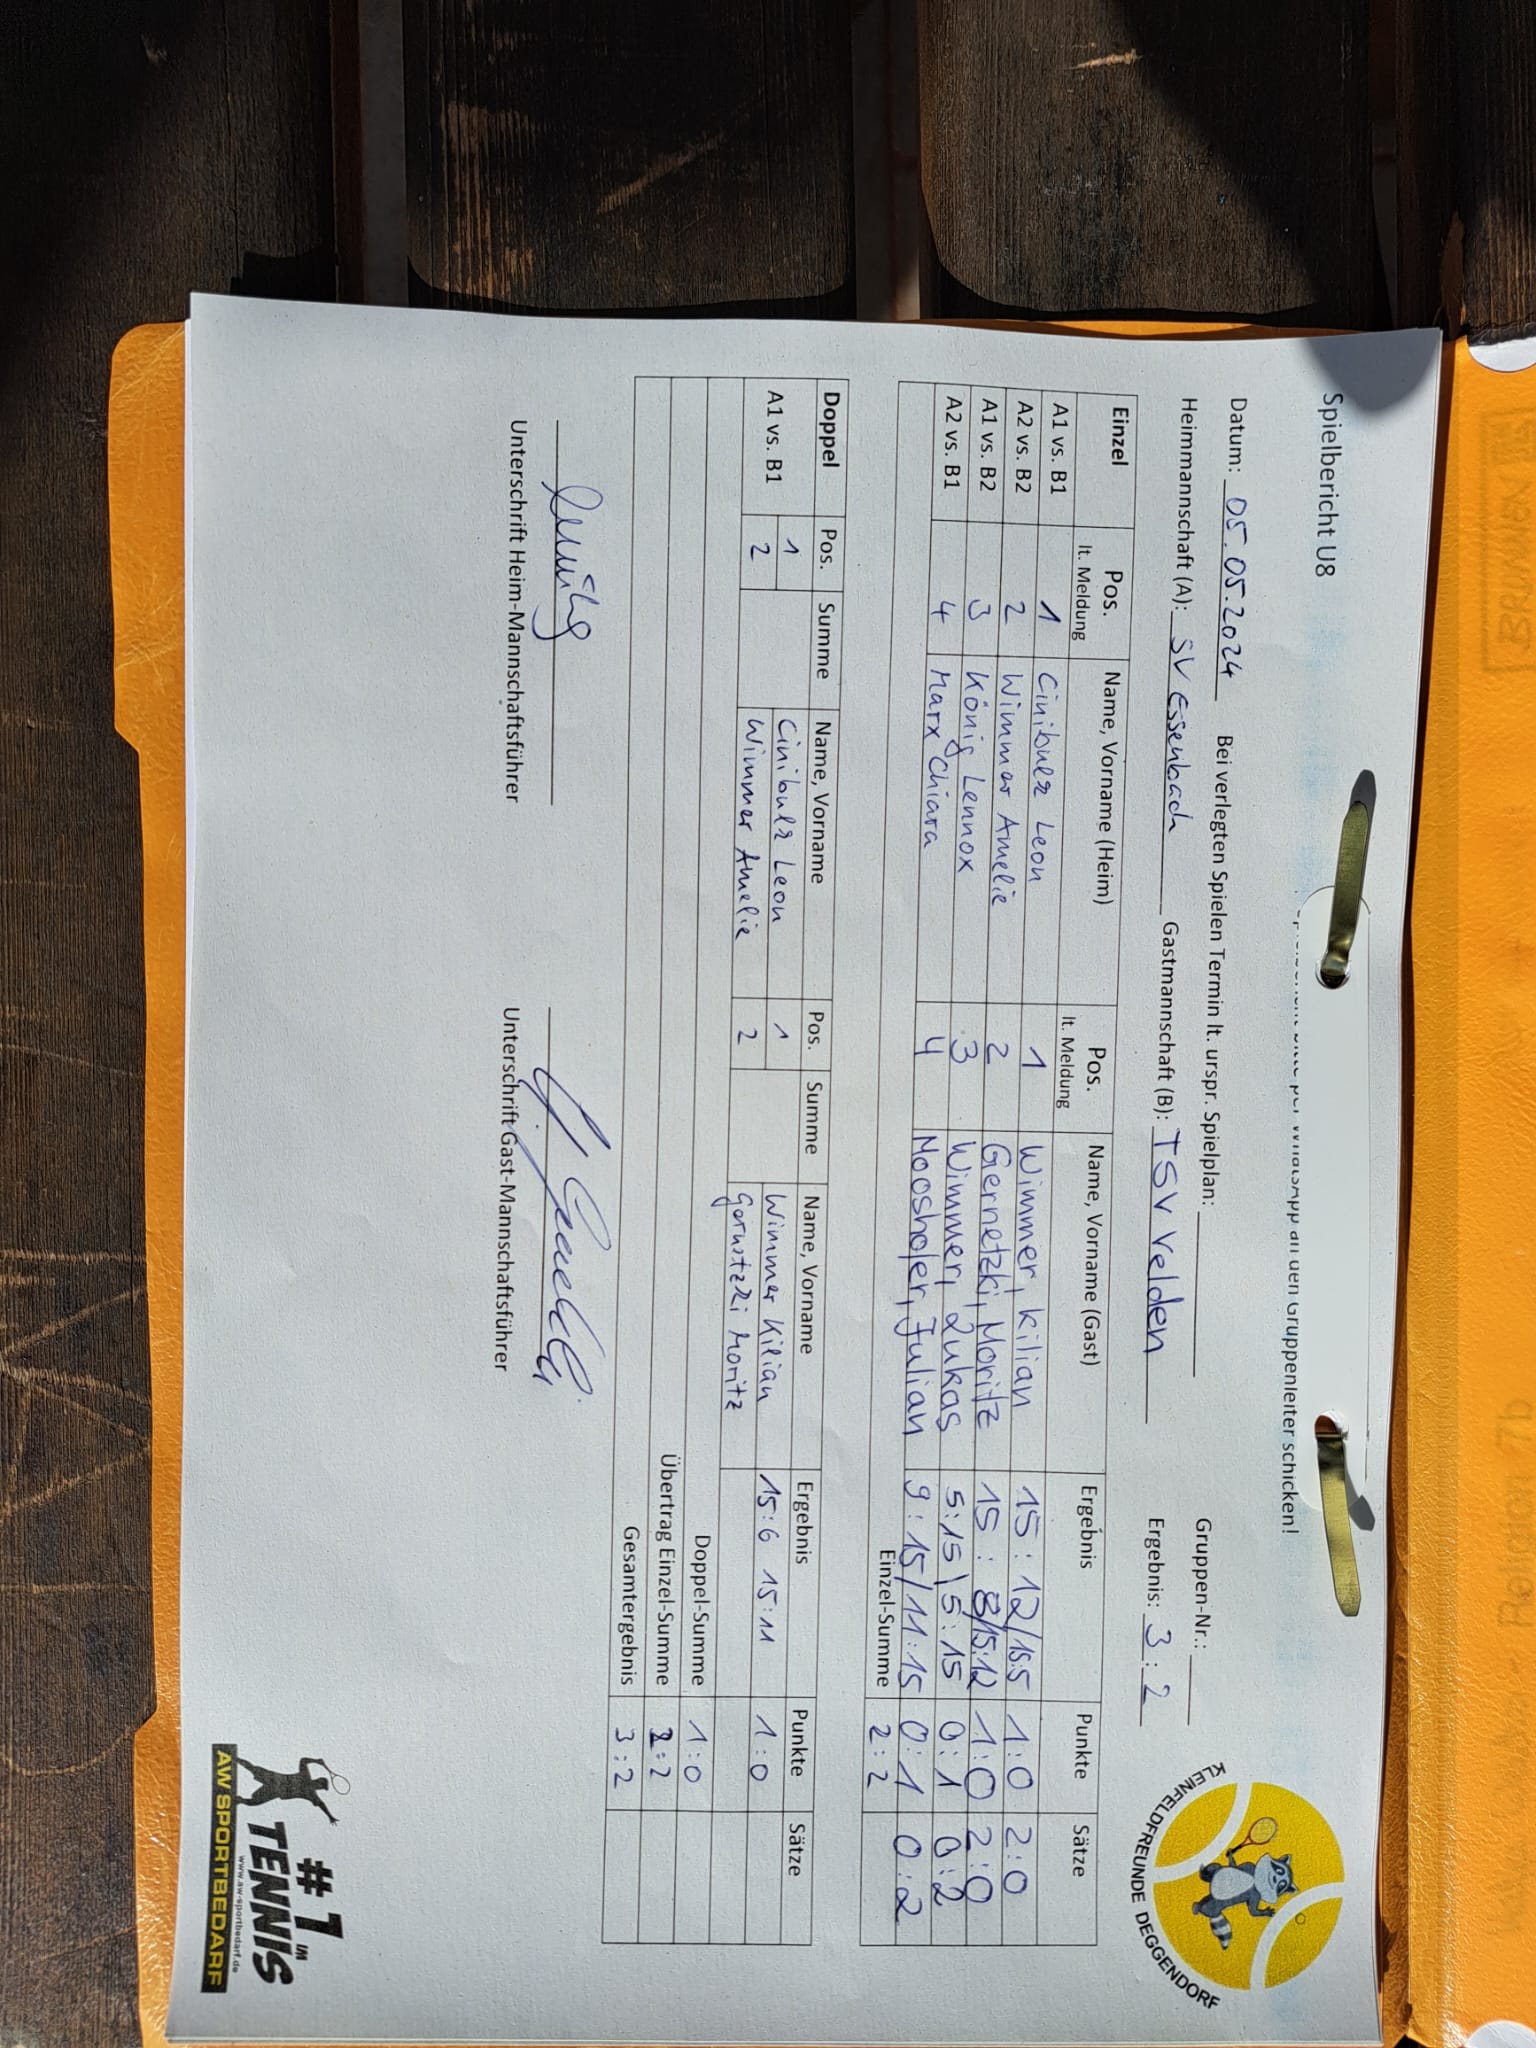 Spielbericht U8
Spielbericht bitte per WhatsApp an den Gruppenleiter schicken!
Datum: 05.05.2024 Bei verlegten Spielen Termin lt. urspr. Spielplan: Gruppen-Nr.:
Heimmannschaft (A): SV Essenbach Gastmannschaft (B): TSV Velden Ergebnis: 3:2
Einzel Pos. lt. Meldung Name, Vorname (Heim) Pos. lt. Meldung Name, Vorname (Gast) Ergebnis Punkte Sätze
A1 vs. B1 1 Cinibulk Leon 1 Wimmer, Kilian 15:12/15:5 1:0 2:0
A2 vs. B2 2 Wimmer Amelie 2 Gernetzki, Moritz 15:8/15:12 1:0 2:0
A1 vs. B2 3 König Lennox 3 Wimmer, Lukas 5:15\5:15 0:1 0:2
A2 vs. B1 4 Marx Chiara 4 Mooshofer, Julian 9:15/11:15 0:1 0:2
Einzel-Summe 2:2
Doppel Pos. Summe Name, Vorname Pos. Summe Name, Vorname Ergebnis Punkte Sätze
A1 vs. B1 1 Cinibulk Leon 1 Wimmer Kilian 15:6 15:11 1:0
2 Wimmer Amelie 2 Gernetzki Moritz
Doppel-Summe 1:0
Übertrag Einzel-Summe 2:2
Gesamtergebnis 3:2
Unterschrift Heim-Mannschaftsführer Unterschrift Gast-Mannschaftsführer
KLEINFELDFREUNDE DEGGENDORF
#1 IM
TENNIS
www.aw-sportbedarf.de
AW SPORTBEDARF